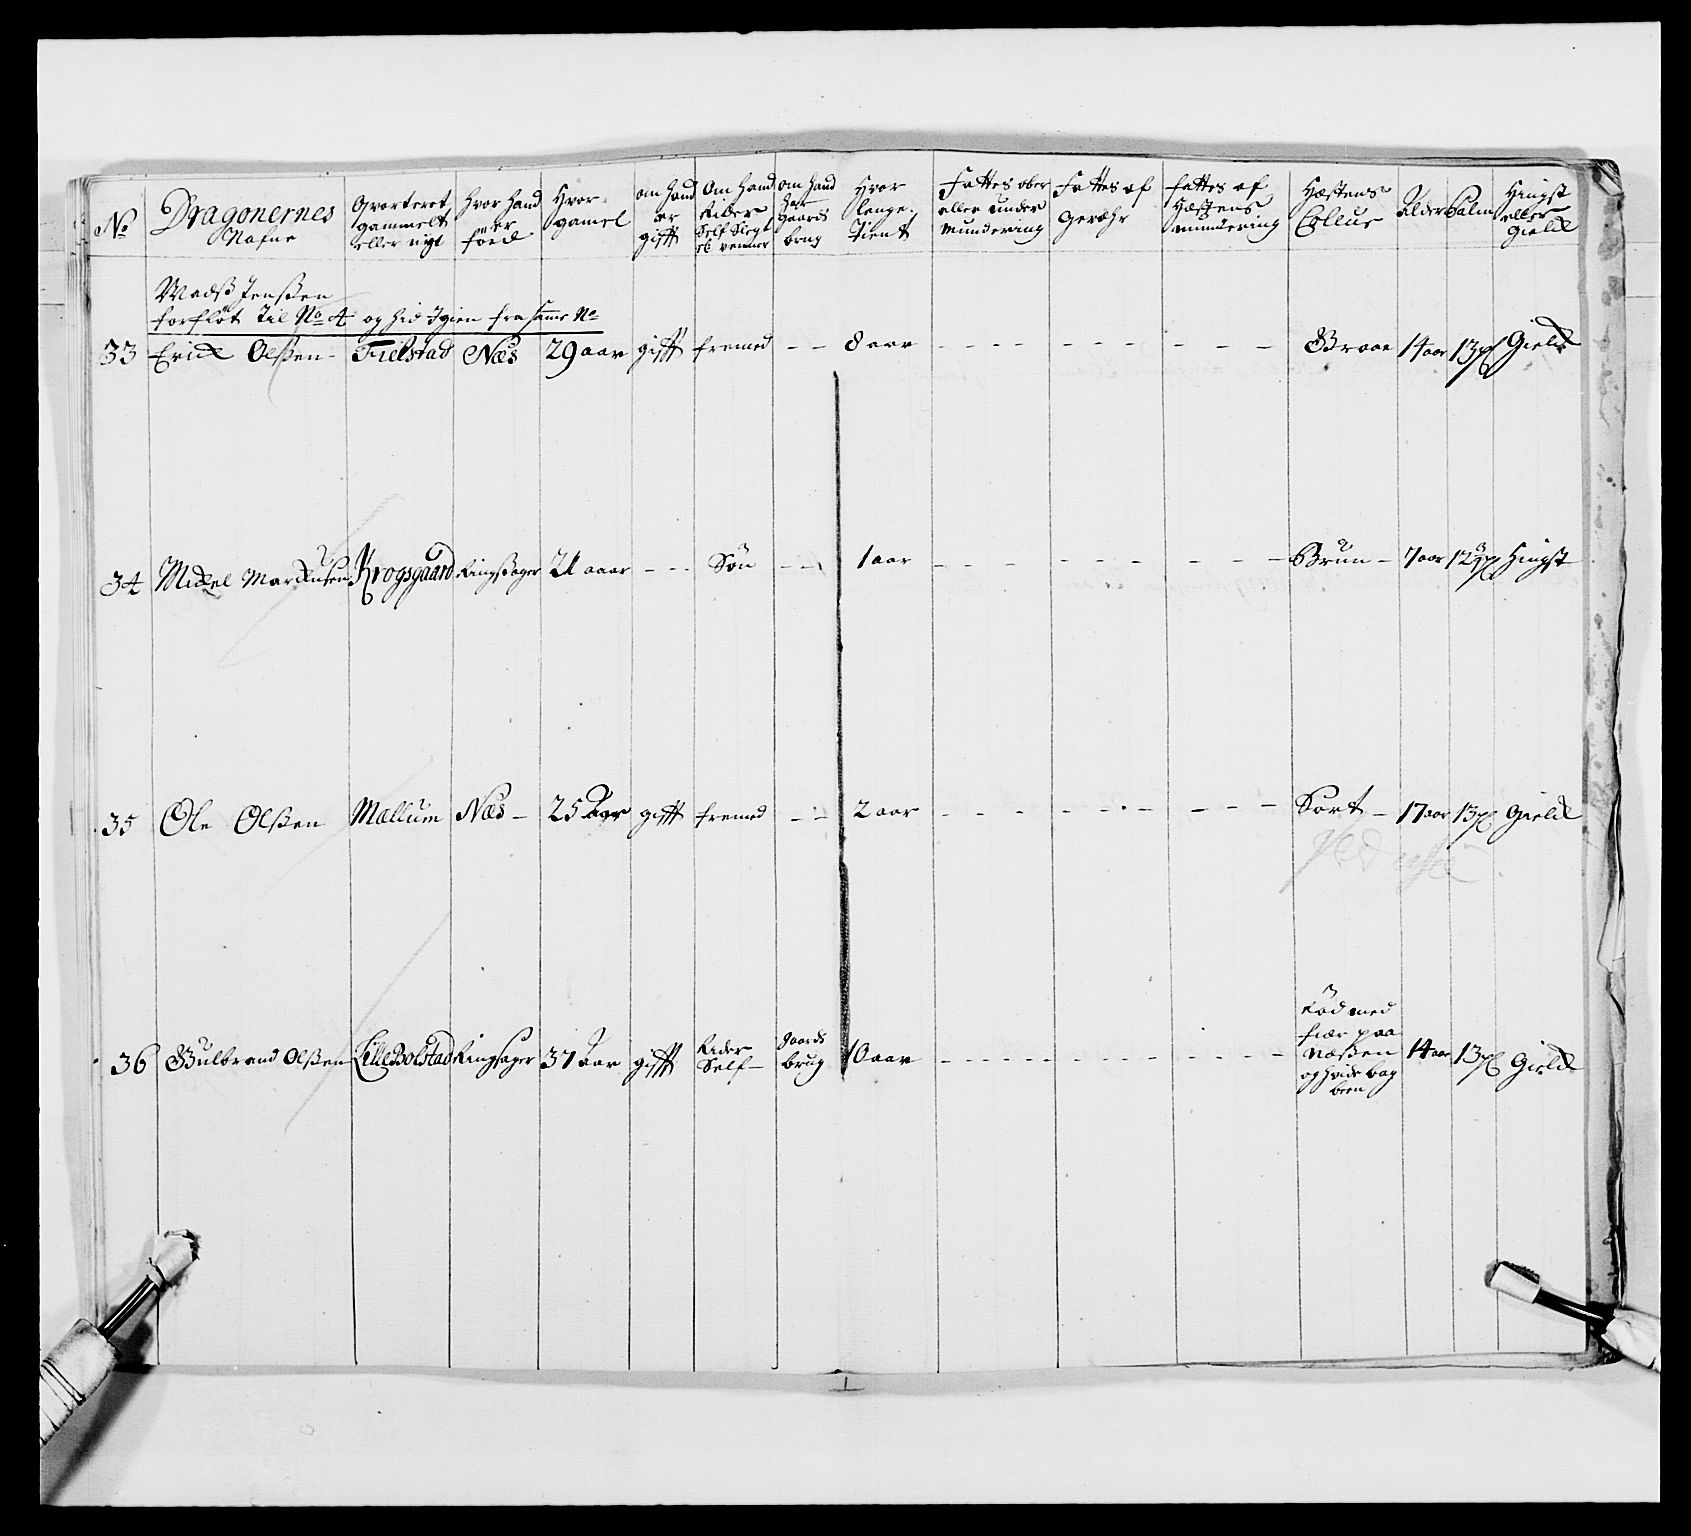 No Dragonernes Nafne Qvarteret gammelt eller nyt Hvor hand er föed Hvor gamel om hand er gifft Om hand Rider Self Slegt el venner om hand har Gaards brug Hvor lenge tient Fattes ober eller under mundering Fattes af geræhr fattes af Hæstens mundering Hæstens Collur Alder Palm Hingst eller gield
Madß Jenßen
forflöt til No 4 og hid Igien fra samme No
33 Erick Olßen - Fielstad Næs 29 aar gifft fremed - - 8 aar - - - - - - - - - - Braae 14 aar 13 pl Gield
34 Mickel Marckußen Krogsgaard Ringßager 21 aaar - - - Søn - - 1 aar - - - - - - - - - - Brun - 7 aar 12 Hingst
35 Ole Olßen Mællum Næs - 25 Aar gifft fremed - - 2 aar - - - - - - - - - - Sort - 17 aar 13 pl Gield
36 Gulbrand Olßen LilleBolstad Ringsager 37 Aar gifft Rider Self - gaards brug 10 aar - - - - - - - - - - Röd med
fiær paa
Næßen
og hvide bag
been 14 aar 13 pl Gield